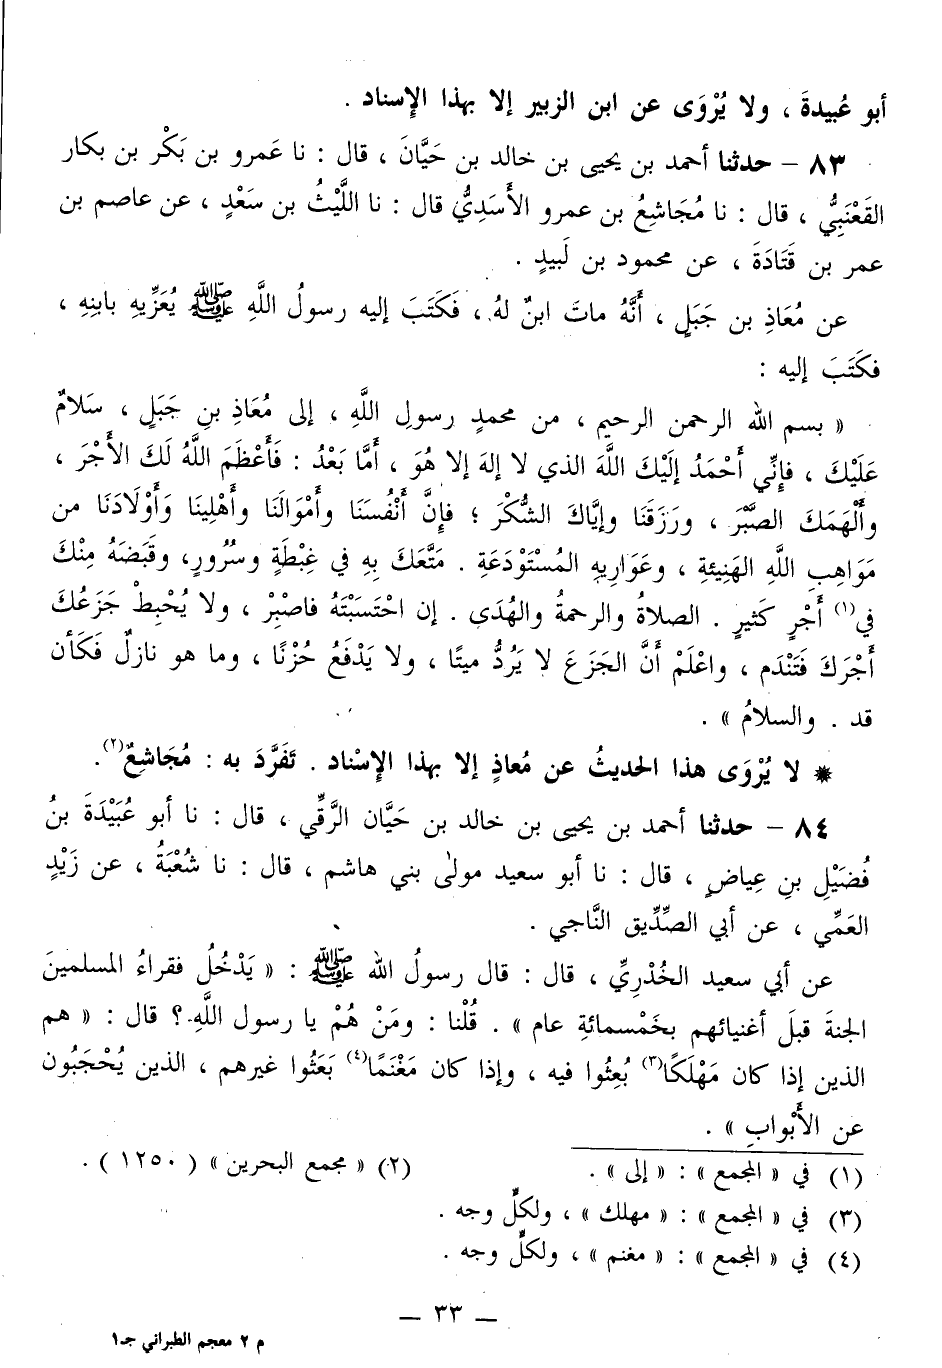 أبو عُبيدةَ ، ولا يُرْوَى عن ابن الزبير إلا بهذا الإسناد .
٨٣ – حدثنا أحمد بن يحيى بن خالد بن حَيَّانَ ، قال : نا عَمرو بن بَكْر بن بكار
القَعْنَبِيُّ ، قال : نا مُجَاشِعُ بن عمرو الأَسَدِيُّ قال : نا اللَّيْثُ بن سَعْدٍ ، عن عاصم بن
عمر بن قَتَادَةَ ، عن محمود بن لَبيدٍ .
عن مُعَاذِ بن جَبَلٍ ، أَنَّهُ ماتَ ابنٌ لهُ ، فَكَتَبَ إليه رسولُ اللَّهِ ﷺ يُعَزِّيهِ بابنِهِ ،
فكَتَبَ إليه :
« بسم الله الرحمن الرحيم ، من محمدٍ رسولِ اللَّهِ ، إلى مُعَاذِ بنِ جَبَلٍ ، سَلامٌ
عَلَيْكَ ، فإِنِّي أَحْمَدُ إلَيْكَ اللَّهَ الذي لا إلهَ إلا هُوَ ، أمَّا بَعْدُ : فَأَعْظَمَ اللَّهُ لَكَ الأجْرَ ،
وأَلْهَمَكَ الصَّبْرَ ، ورَزَقَنَا وإيَّاكَ الشُّكْرَ ؛ فإنَّ أَنْفُسَنَا وأمْوَالَنَا وأهْلِينَا وَأوْلَادَنَا من
مَوَاهِبِ اللَّهِ الهَنِيئةِ ، وعَوَارِيهِ المُسْتَوْدَعَةِ . مَتَّعَكَ بِهِ في غِبْطَةٍ وسُرُورٍ، وقَبَضَهُ مِنْكَ
في(١) أَجْرٍ كَثيرٍ . الصلاةُ والرحمةُ والهُدَى . إن احْتَسَبْتَهُ فاصْبِرْ ، ولا يُحْبِطْ جَزَعُكَ
أجْرَكَ فَتَنْدَم ، واعْلَمْ أنَّ الجَزَعَ لا يَرُدُّ ميتًا ، ولا يَدْفَعُ حُزْنًا ، وما هو نازلٌ فكَأن
قد . والسلامُ » .
* لا يُرْوَى هذا الحديثُ عن مُعاذٍ إلا بهذا الإسْناد . تَفَرَّدَ به : مُجَاشِعٌ(٢).
٨٤ – حدثنا أحمد بن يحيى بن خالد بن حَيَّان الرَّقِّي ، قال : نا أبو عُبَيْدَةَ بنُ
فُضَيْلِ بنِ عِياضٍ ، قال : نا أبو سعيد مولىٰ بني هاشم ، قال : نا شُعْبَةُ ، عن زَيْدٍ
العَمِّي ، عن أبي الصِّدِّيق النَّاجي .
عن أبي سعيد الخُدْرِيِّ ، قال : قال رسولُ الله ﷺ : « يَدْخُلُ فقراءُ المسلمينَ
الجنةَ قبلَ أغنيائهم بخَمْسمائةِ عام » . قُلْنا : ومَنْ هُمْ يا رسول اللَّهِ ؟ قال : « هم
الذين إذا كان مَهْلَكًا(٣) بُعِثُوا فيه ، وإذا كان مَغْنَمًا(٤) بَعَثُوا غيرهم ، الذين يُحْجَبُون
عن الأَبْوابِ » .
(١) في « المجمع » : « إلى » .
(٢) « مجمع البحرين » ( ١٢٥٠ ) .
(٣) في « المجمع » : « مهلك » ، ولكلٍّ وجه .
(٤) في « المجمع » : « مغنم » ، ولكلٍّ وجه .
— ٣٣ —
م ٢ معجم الطبراني جـ١